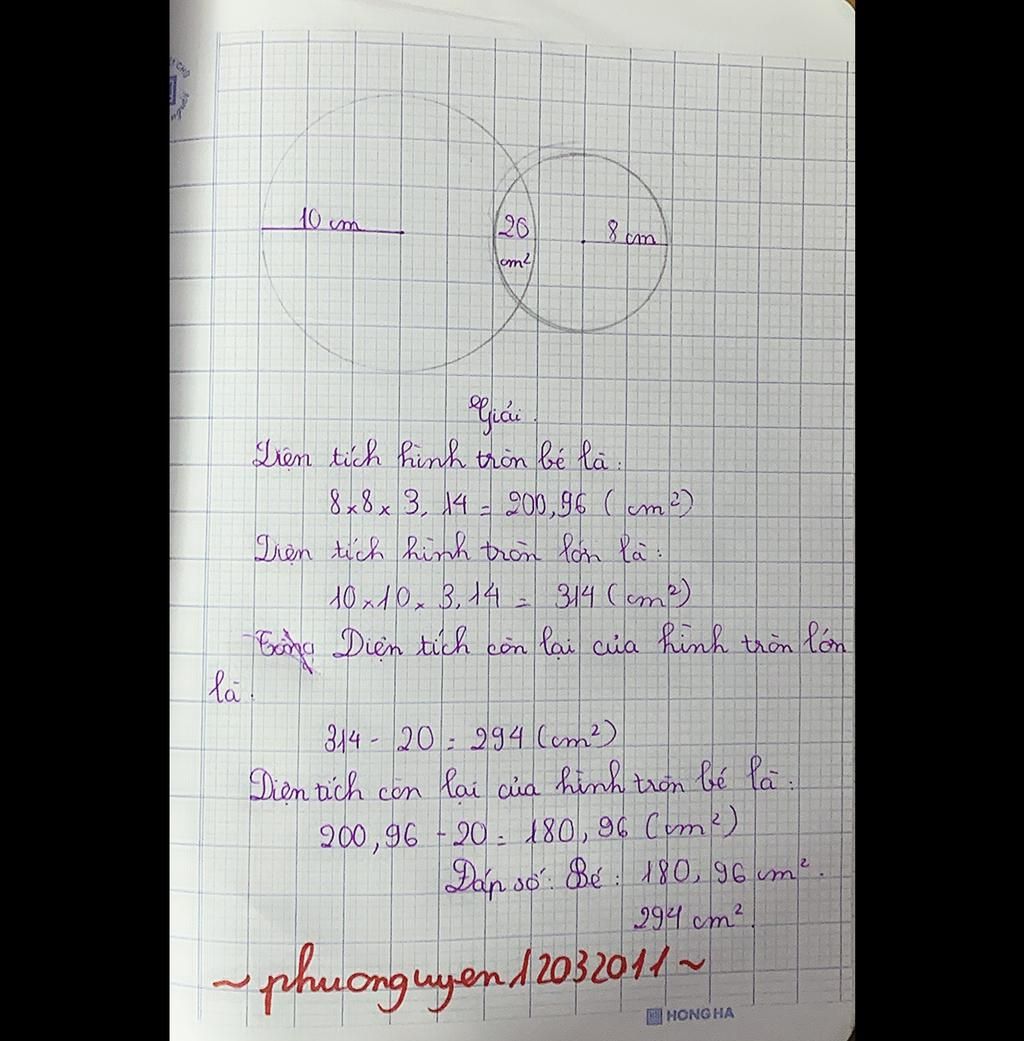 10 cm
20
cm²
8 cm
Giải.
Diện tích hình tròn bé là:
8 x 8 x 3,14 = 200,96 (cm²)
Diện tích hình tròn lớn là:
10 x 10 x 3,14 = 314 (cm²)
Diện tích còn lại của hình tròn lớn
là:
314 - 20 = 294 (cm²)
Diện tích còn lại của hình tròn bé là:
200,96 - 20 = 180,96 (cm²)
Đáp số: Bé: 180,96 cm².
294 cm².
~phuonguyen12032011~
HONG HA